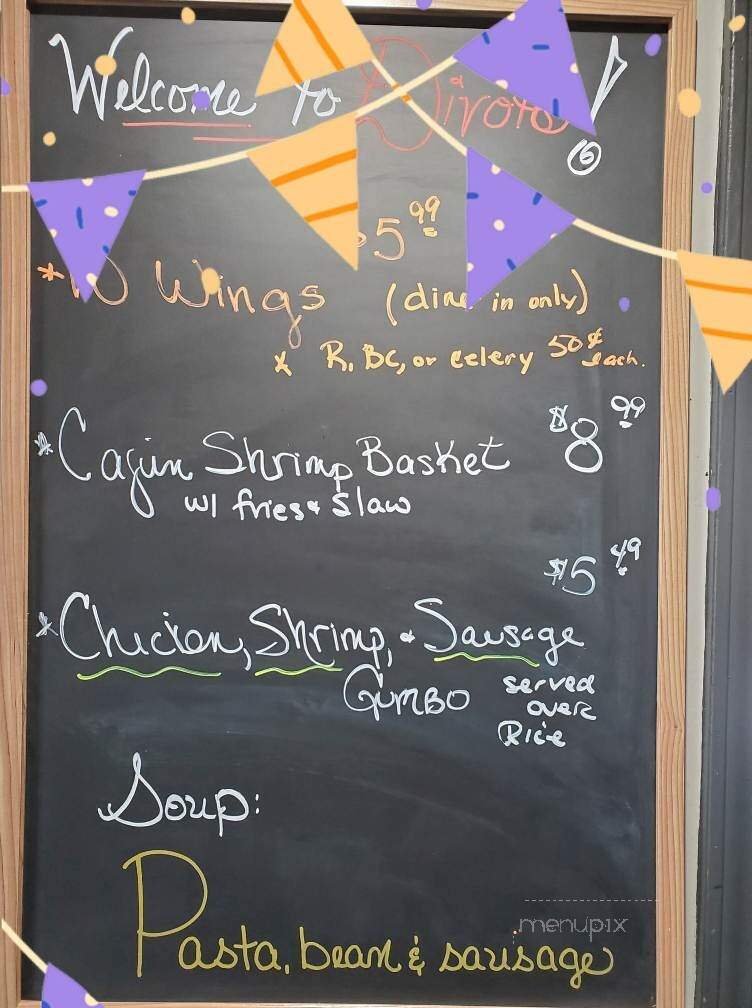 Welcome to Divots!
$5 99
* 10 Wings (dine in only)
* R, BC, or celery 50¢ each.
$8 99
* Cajun Shrimp Basket
w/ fries & slaw
$5 49
* Chicken, Shrimp, & Sausage
Gumbo served
over
Rice
Soup:
Pasta, bean & sausage
menupix